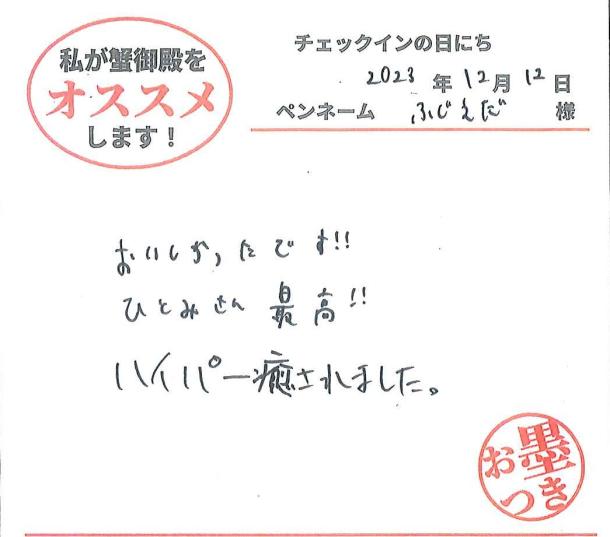 私が蟹御殿を
オススメ
します！
チェックインの日にち
2023 年 12月 12日
ペンネーム ふじえだ 様
おいしかったです!!
ひとみさん 最高!!
ハイパー癒されました。
お墨
つき